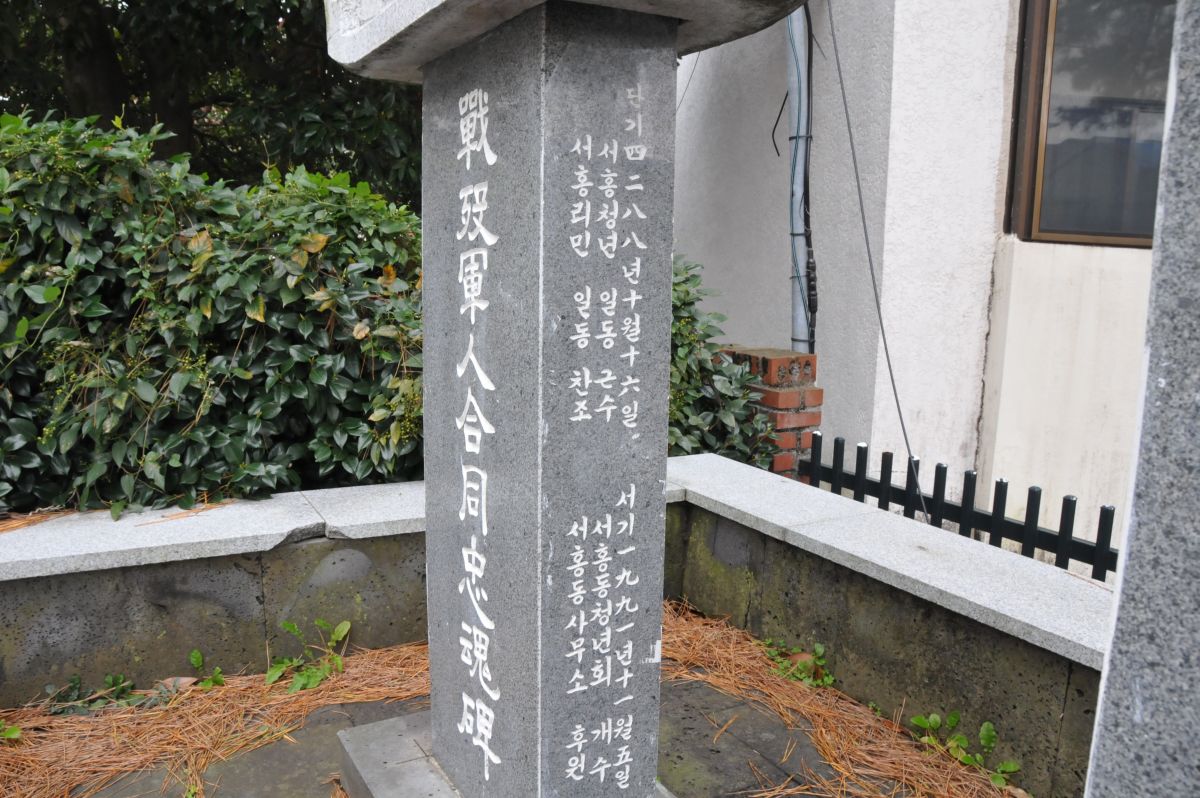 戰歿軍人合同忠魂碑
단기四二八八年十월十六일
서홍청년 일동 근수
서홍리민 일동 찬조
서기一九九一년十一월五일
서홍동청년회 개수
서홍동사무소 후원